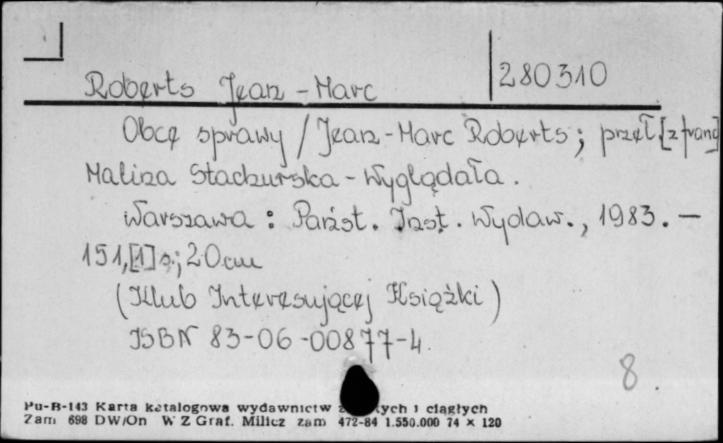 Roberts Jean-Marc
280310
Obce sprawy / Jean-Marc Roberts; przeł. [z franc]
Malina Stachurska-Wyglądała.
Warszawa: Państ. Inst. Wydaw., 1983. —
151,[1]s.; 20cm
(Klub Interesującej Książki)
ISBN 83-06-00877-4.
8
Pu-B-143 Karta katalogowa wydawnictw i ciągłych
Zam 698 DW/On W Z Graf. Milicz zam 472-84 1.550.000 74 × 120